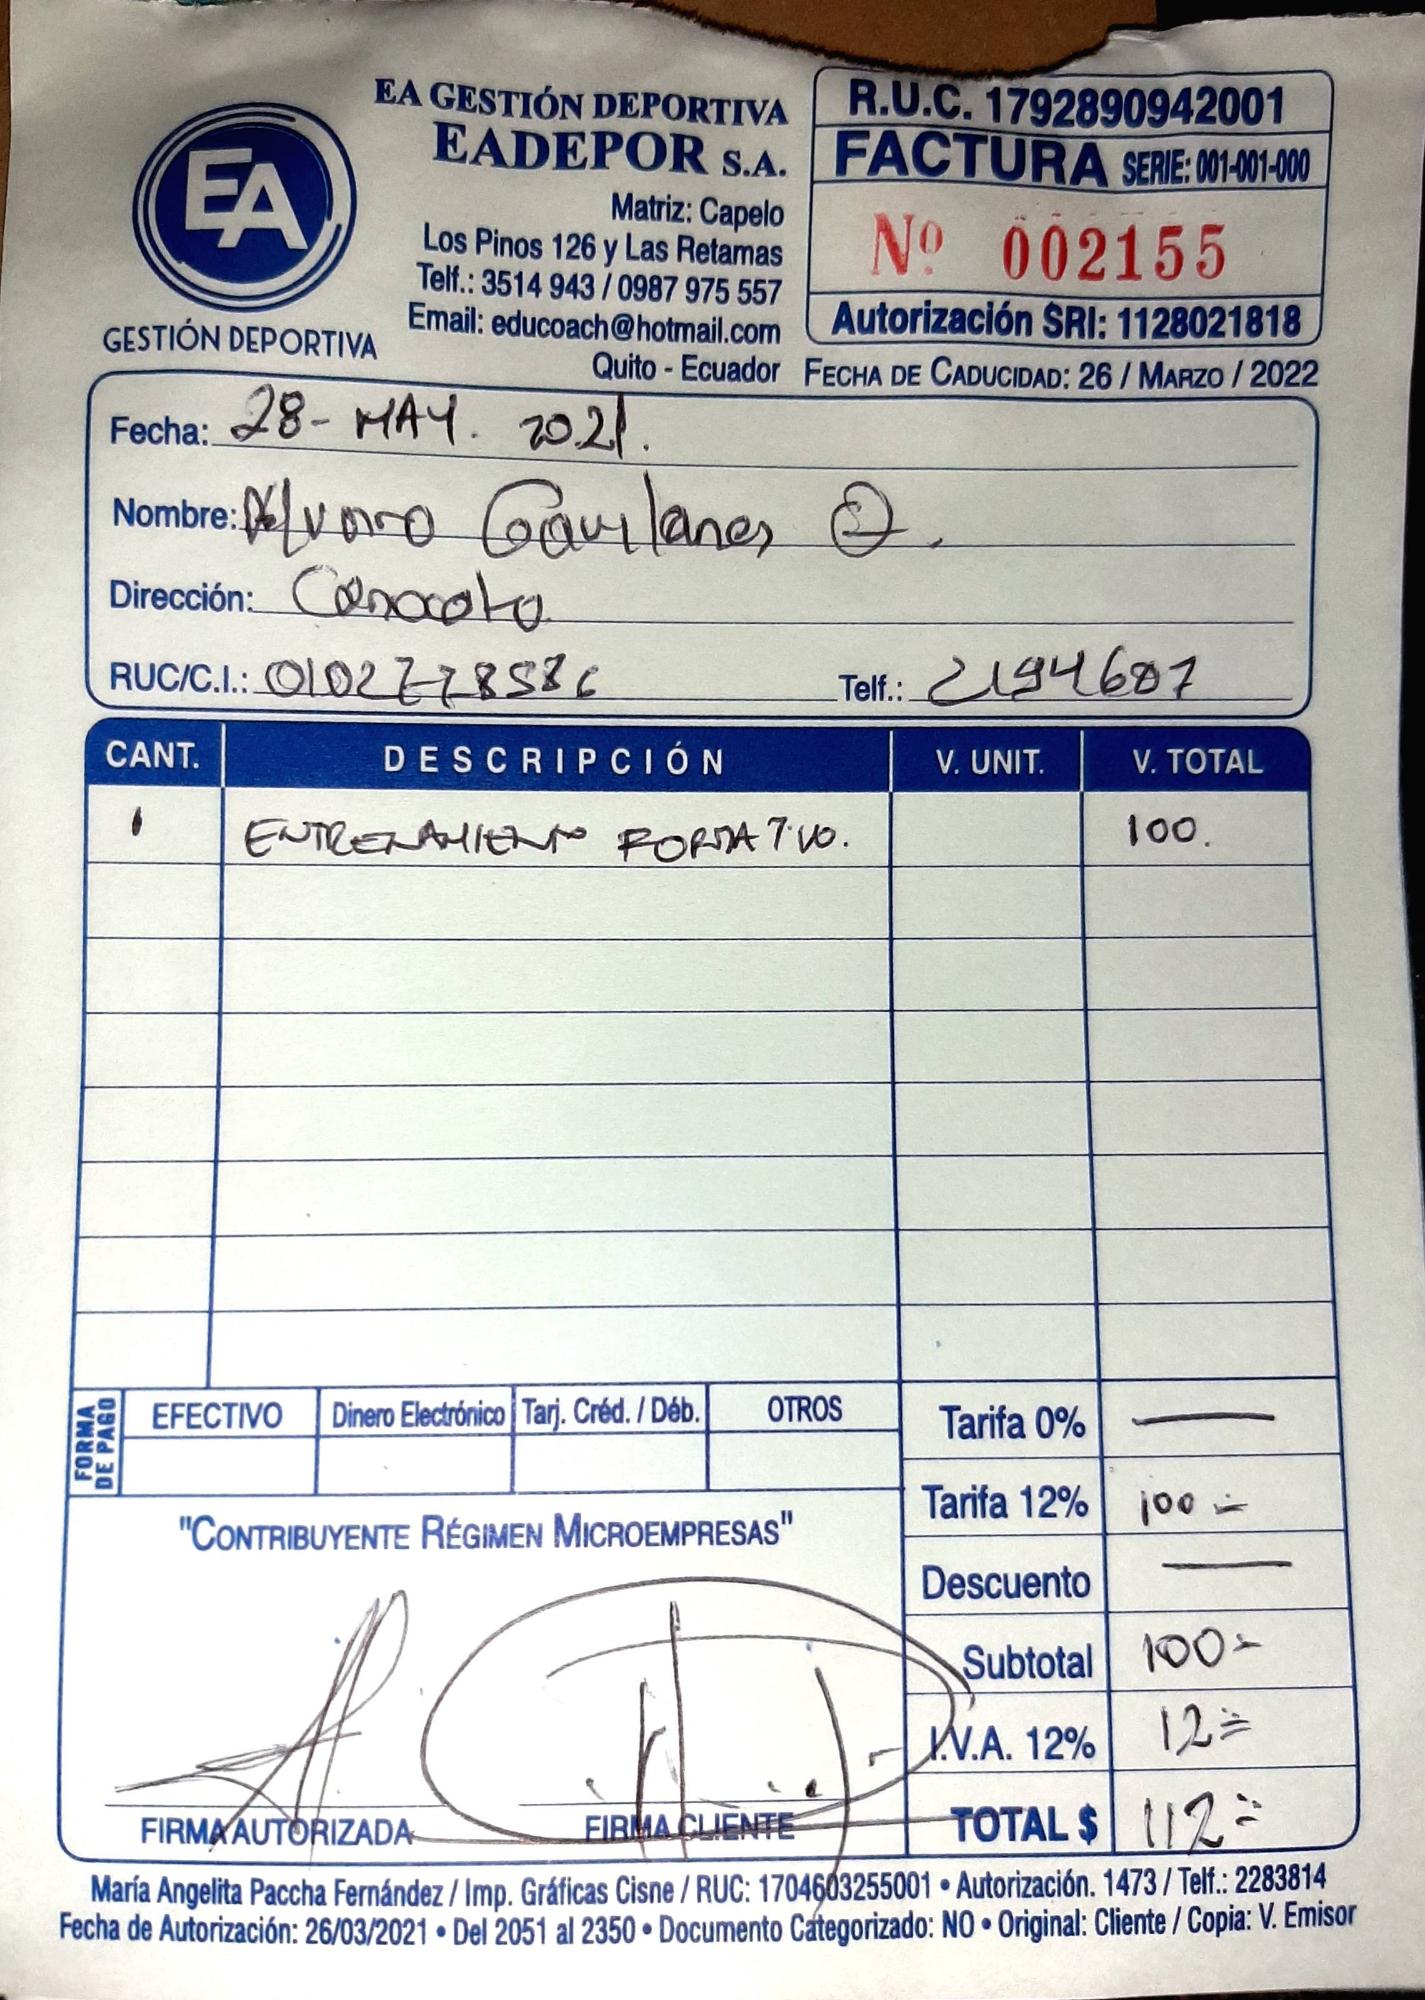 EA GESTIÓN DEPORTIVA
EADEPOR S.A.
Matriz: Capelo
Los Pinos 126 y Las Retamas
Telf.: 3514 943 / 0987 975 557
Email: educoach@hotmail.com
Quito - Ecuador
EA
GESTIÓN DEPORTIVA
R.U.C. 1792890942001
FACTURA SERIE: 001-001-000
Nº 002155
Autorización SRI: 1128021818
FECHA DE CADUCIDAD: 26 / MARZO / 2022
Fecha: 28- MAY. 2021.
Nombre: Alvaro Gavilanes
Dirección: Conocoto
RUC/C.I.: 0102778586 Telf.: 2194687
CANT. DESCRIPCIÓN V. UNIT. V. TOTAL
1 ENTRENAMIENTO FORMATIVO. 100.
FORMA DE PAGO
EFECTIVO Dinero Electrónico Tarj. Créd. / Déb. OTROS
Tarifa 0% —
Tarifa 12% 100
Descuento —
Subtotal 100
I.V.A. 12% 12
TOTAL $ 112
"CONTRIBUYENTE RÉGIMEN MICROEMPRESAS"
FIRMA AUTORIZADA FIRMA CLIENTE
María Angelita Paccha Fernández / Imp. Gráficas Cisne / RUC: 1704603255001 • Autorización. 1473 / Telf.: 2283814
Fecha de Autorización: 26/03/2021 • Del 2051 al 2350 • Documento Categorizado: NO • Original: Cliente / Copia: V. Emisor